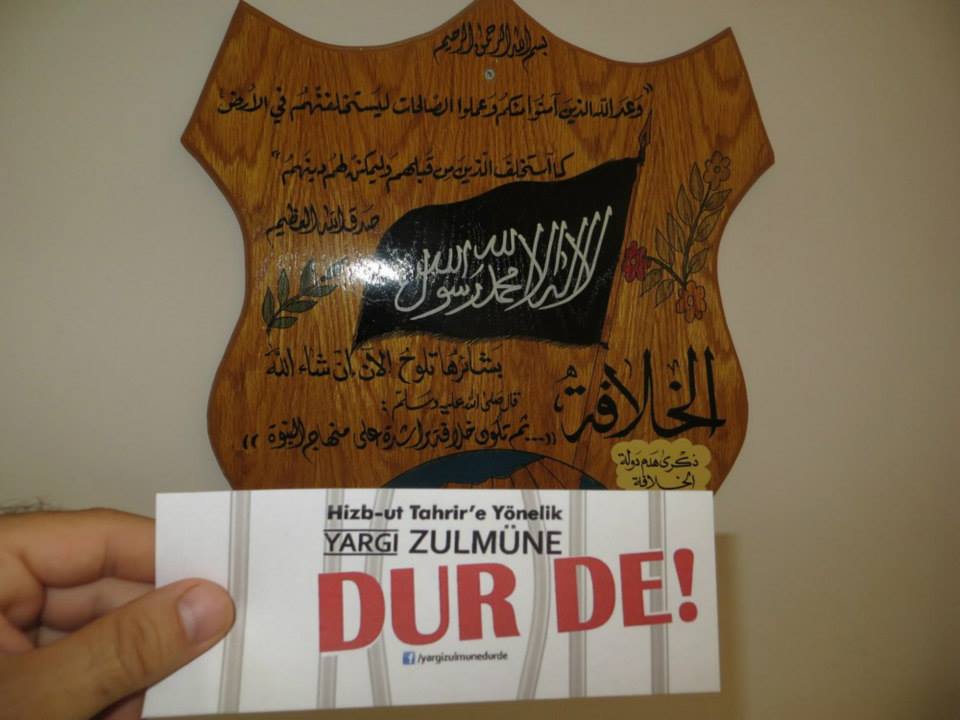 بسم الله الرحمن الرحيم
"وعد الله الذين آمنوا منكم وعملوا الصالحات ليستخلفنهم في الأرض
كما استخلف الذين من قبلهم وليمكنن لهم دينهم"
صدق الله العظيم
لا إله إلا الله
محمد رسول الله
بشائرها تلوح الآن إن شاء الله
الخلافة
قال صلى الله عليه وسلم :
((... ثم تكون خلافة راشدة على منهاج النبوة))
ذكرى هدم دولة
الخلافة
Hizb-ut Tahrir'e Yönelik
YARGI ZULMÜNE
DUR DE!
f /yargizulmunedurde